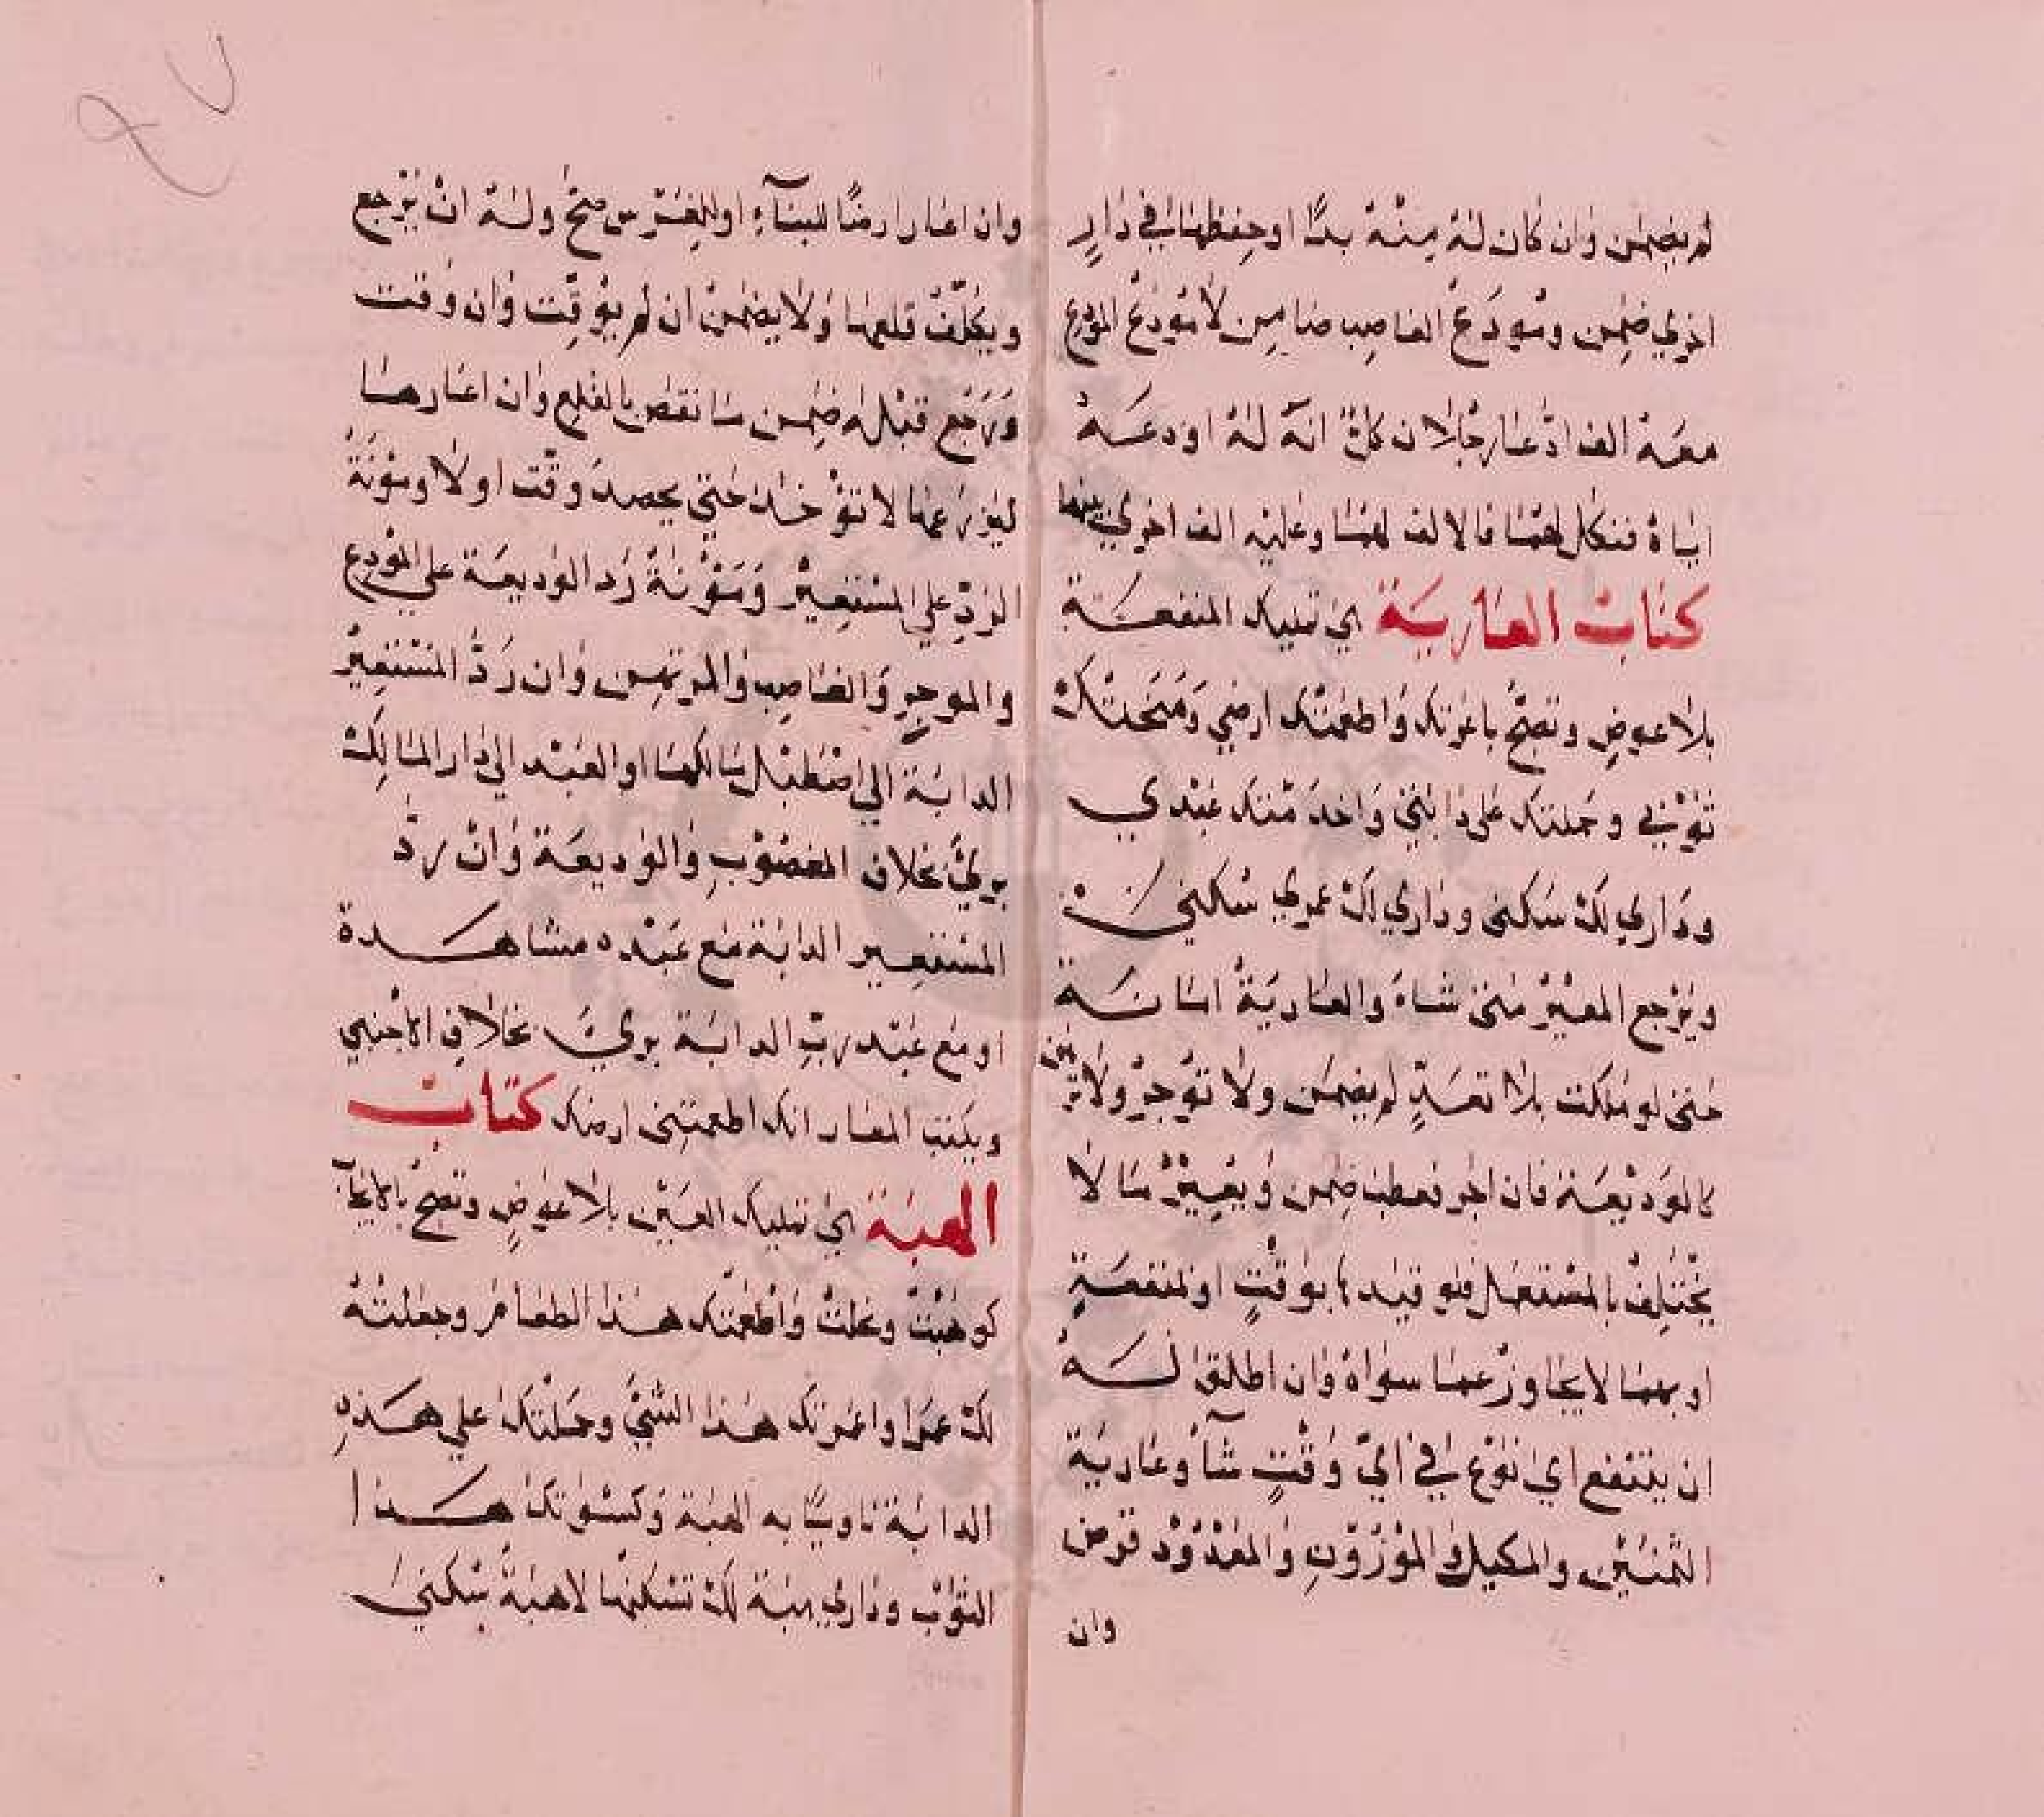 لم يضمن وان كان له منه بدا او حفظها في دار
اخري ضمن ومودع الغاصب ضامن لا مودع المودع
معه الف ادعا رجلان كل انه له اودعه
اياه فنكل لهما فالالف لهما وعليه الف اخري بينهما
كتاب العارية هي تمليك المنفعة
بلا عوض وتصح باعرتك واطعمتك ارضي ومنحتك
ثوبي وحملتك على دابتي واخدمتك عبدي
وداري لك سكنى وداري لك عمري سكني
ويرجع المعير متى شاء والعارية امانة
حتى لو هلكت بلا تعد لم يضمن ولا توجر ولا ترهن
كالوديعة فان اجر فعطب ضمن ويعير ما لا
يختلف بالمستعمل فلو قيدها بوقت او لمنفعة
او بهما لا يجاوز عما سماه وان اطلق له
ان ينتفع اي نوع في اي وقت شآ وعارية
الثمنين والمكيل والموزون والمعدود قرض
وان
وان اعار ارضا للبنآء او للغرس صح وله ان يرجع
ويكلف قلعها ولا يضمن ان لم يوقت وان وقت
ورجع قبله ضمن ما نقص بالقلع وان اعارها
ليزرعها لا تؤخذ حتي يحصد وقت او لا ومونة
الرد علي المستعير ومؤنة رد الوديعة علي المودع
والموجر والغاصب والمرتهن وان رد المستعير
الدابة الي اصطبل مالكها او العبد الي دار المالك
بري بخلاف المغصوب والوديعة وان رد
المستعير الدابة مع عبده مشاهدة
او مع عبد رب الدابة بري بخلاف الاجنبي
ويكتب المعار انك اطعمتني ارضك كتاب
الهبة هي تمليك العين بلا عوض وتصح بالايجآ
كوهبت ونحلت واطعمتك هذا الطعام وجعلته
لك عمرا واعمرتك هذا الشي وحملتك علي هذه
الدابة ناويا به الهبة وكسوتك هذا
الثوب وداري هبة لك تسكنها لا هبة سكني